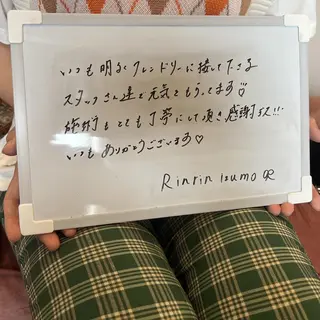 いつも明るくフレンドリーに接して下さる
スタッフさん達で元気でもらってます♡
施術もとても丁寧にして頂き感謝です!!!
いつもありがとうございます♡
Rinrin Izumo